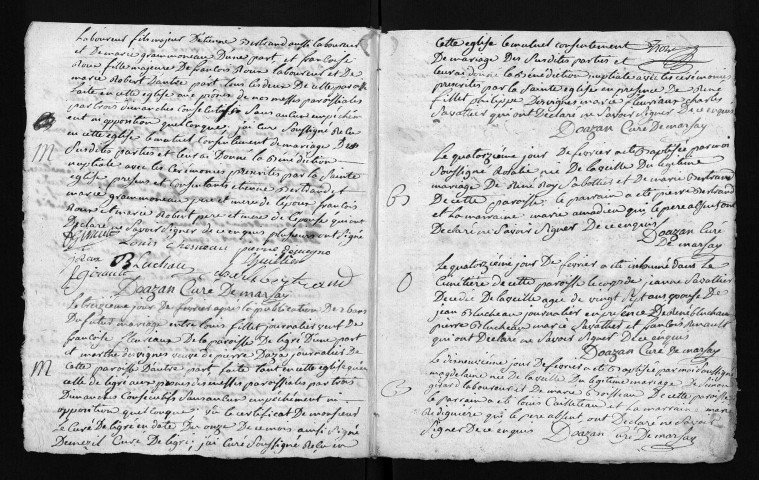 laboureur fils majeur d'etienne Bertrand aussi laboureur
et De marie grammoneau D'une part, et francoise
Roux fille majeure De francois Roux laboureur et De
marie Robert D'autre part tous les deux De cette paroisse
faite en cette eglise aux prones De nos messes paroissiales
par trois dimanches consecutifs Sans aucun empechem
ent ni opposition quelconques, j'ai cure Soussigné Reçu
en cette eglise le mutuel consentement de mariage Des
M
Susdites parties et leur ai Donné la Benediction
nuptiale avec les Ceremonies prescrites par la Sainte
eglise presens et Consentants etienne Bertrand, et
marie grammoneau pere et mere de l'epoux francois
Roux et marie Robert pere et mere de l'epouse qui ont
Declaré ne Savoir Signer De ce enquis plusieurs ont Signé
Louis
Bluchau
Daazan Curé De marsay
Le treizieme jour De fevrier apres la publication De 3 bans
Du futur mariage entre Louis fillet journalier veuf De
francoise fleuriaux De la paroisse De ligre D'une part
et marthe devignes veuve de pierre Dazay journalier De
M
Cette paroisse D'autre part faite tant en cette eglise qu'en
celle de ligre aux prones des messes paroissiales par trois
Dimanches Consecutifs Sans aucun empechement ni
opposition quelconque vu le certificat De monsieur
le Curé De ligre en date Du onze De ce mois aussi Signé
Curé De ligre, j'ai Curé Soussigné Reçu en
cette eglise le mutuel consentement
De mariage Des Susdites parties et
leur ai donné la Benediction nuptiale avec les ceremonies
prescrites par la Sainte eglise en presence De René
fillet philippe Devignes marie fleuriaux charles
Savatier qui ont Declaré ne Savoir Signer De ce enquis
Daazan Curé De marsay
Le quatorzieme jour De fevrier a eté Baptisée par moi
Soussigné Rosalie née De la veille Du legitime
mariage De René Roy Sabottier et De marie Bertrand
B
De cette paroisse, le parrain a eté pierre Bertrand
et La marraine marie amadieu qui le pere absent ont
Declaré ne Savoir Signer De ce enquis
Daazan Curé
De marsay
Le quatorzieme jour De fevrier a eté inhumé Dans Le
Cimetiere de cette paroisse le corps de jeanne Savatier
O
Decedé De la veille agée de vingt Sept ans epouse De
jean Blucheau journalier en presence De René Blucheau
pierre Blucheau marie Savatier et francois Renault
qui ont Declaré ne Savoir Signer De ce enquis
Daazan Curé De marsay
Le dixneuvieme jour De fevrier a eté Baptisée par moi Soussigné
magdelaine née de la veille Du legitime mariage De Simon
B
girard laboureur et De marie Croiseau De cette paroisse
Le parrain a eté louis Cailliteau et La marraine marie
qui le pere absent, ont Declaré ne Savoir
Signer De ce enquis
Daazan Curé De marsay